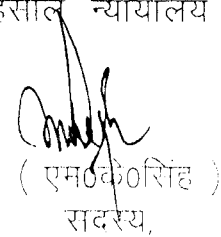 न्यायालय
( एम०के०सिंह )
सदस्य,